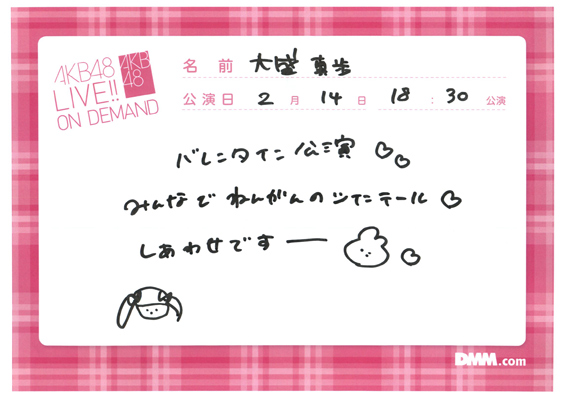 AKB48
LIVE!!
ON DEMAND
AKB
48
名前 大盛 真歩
公演日 2月 14日 18:30 公演
バレンタイン公演
みんなでねんがんのツインテール
しあわせですー
DMM.com